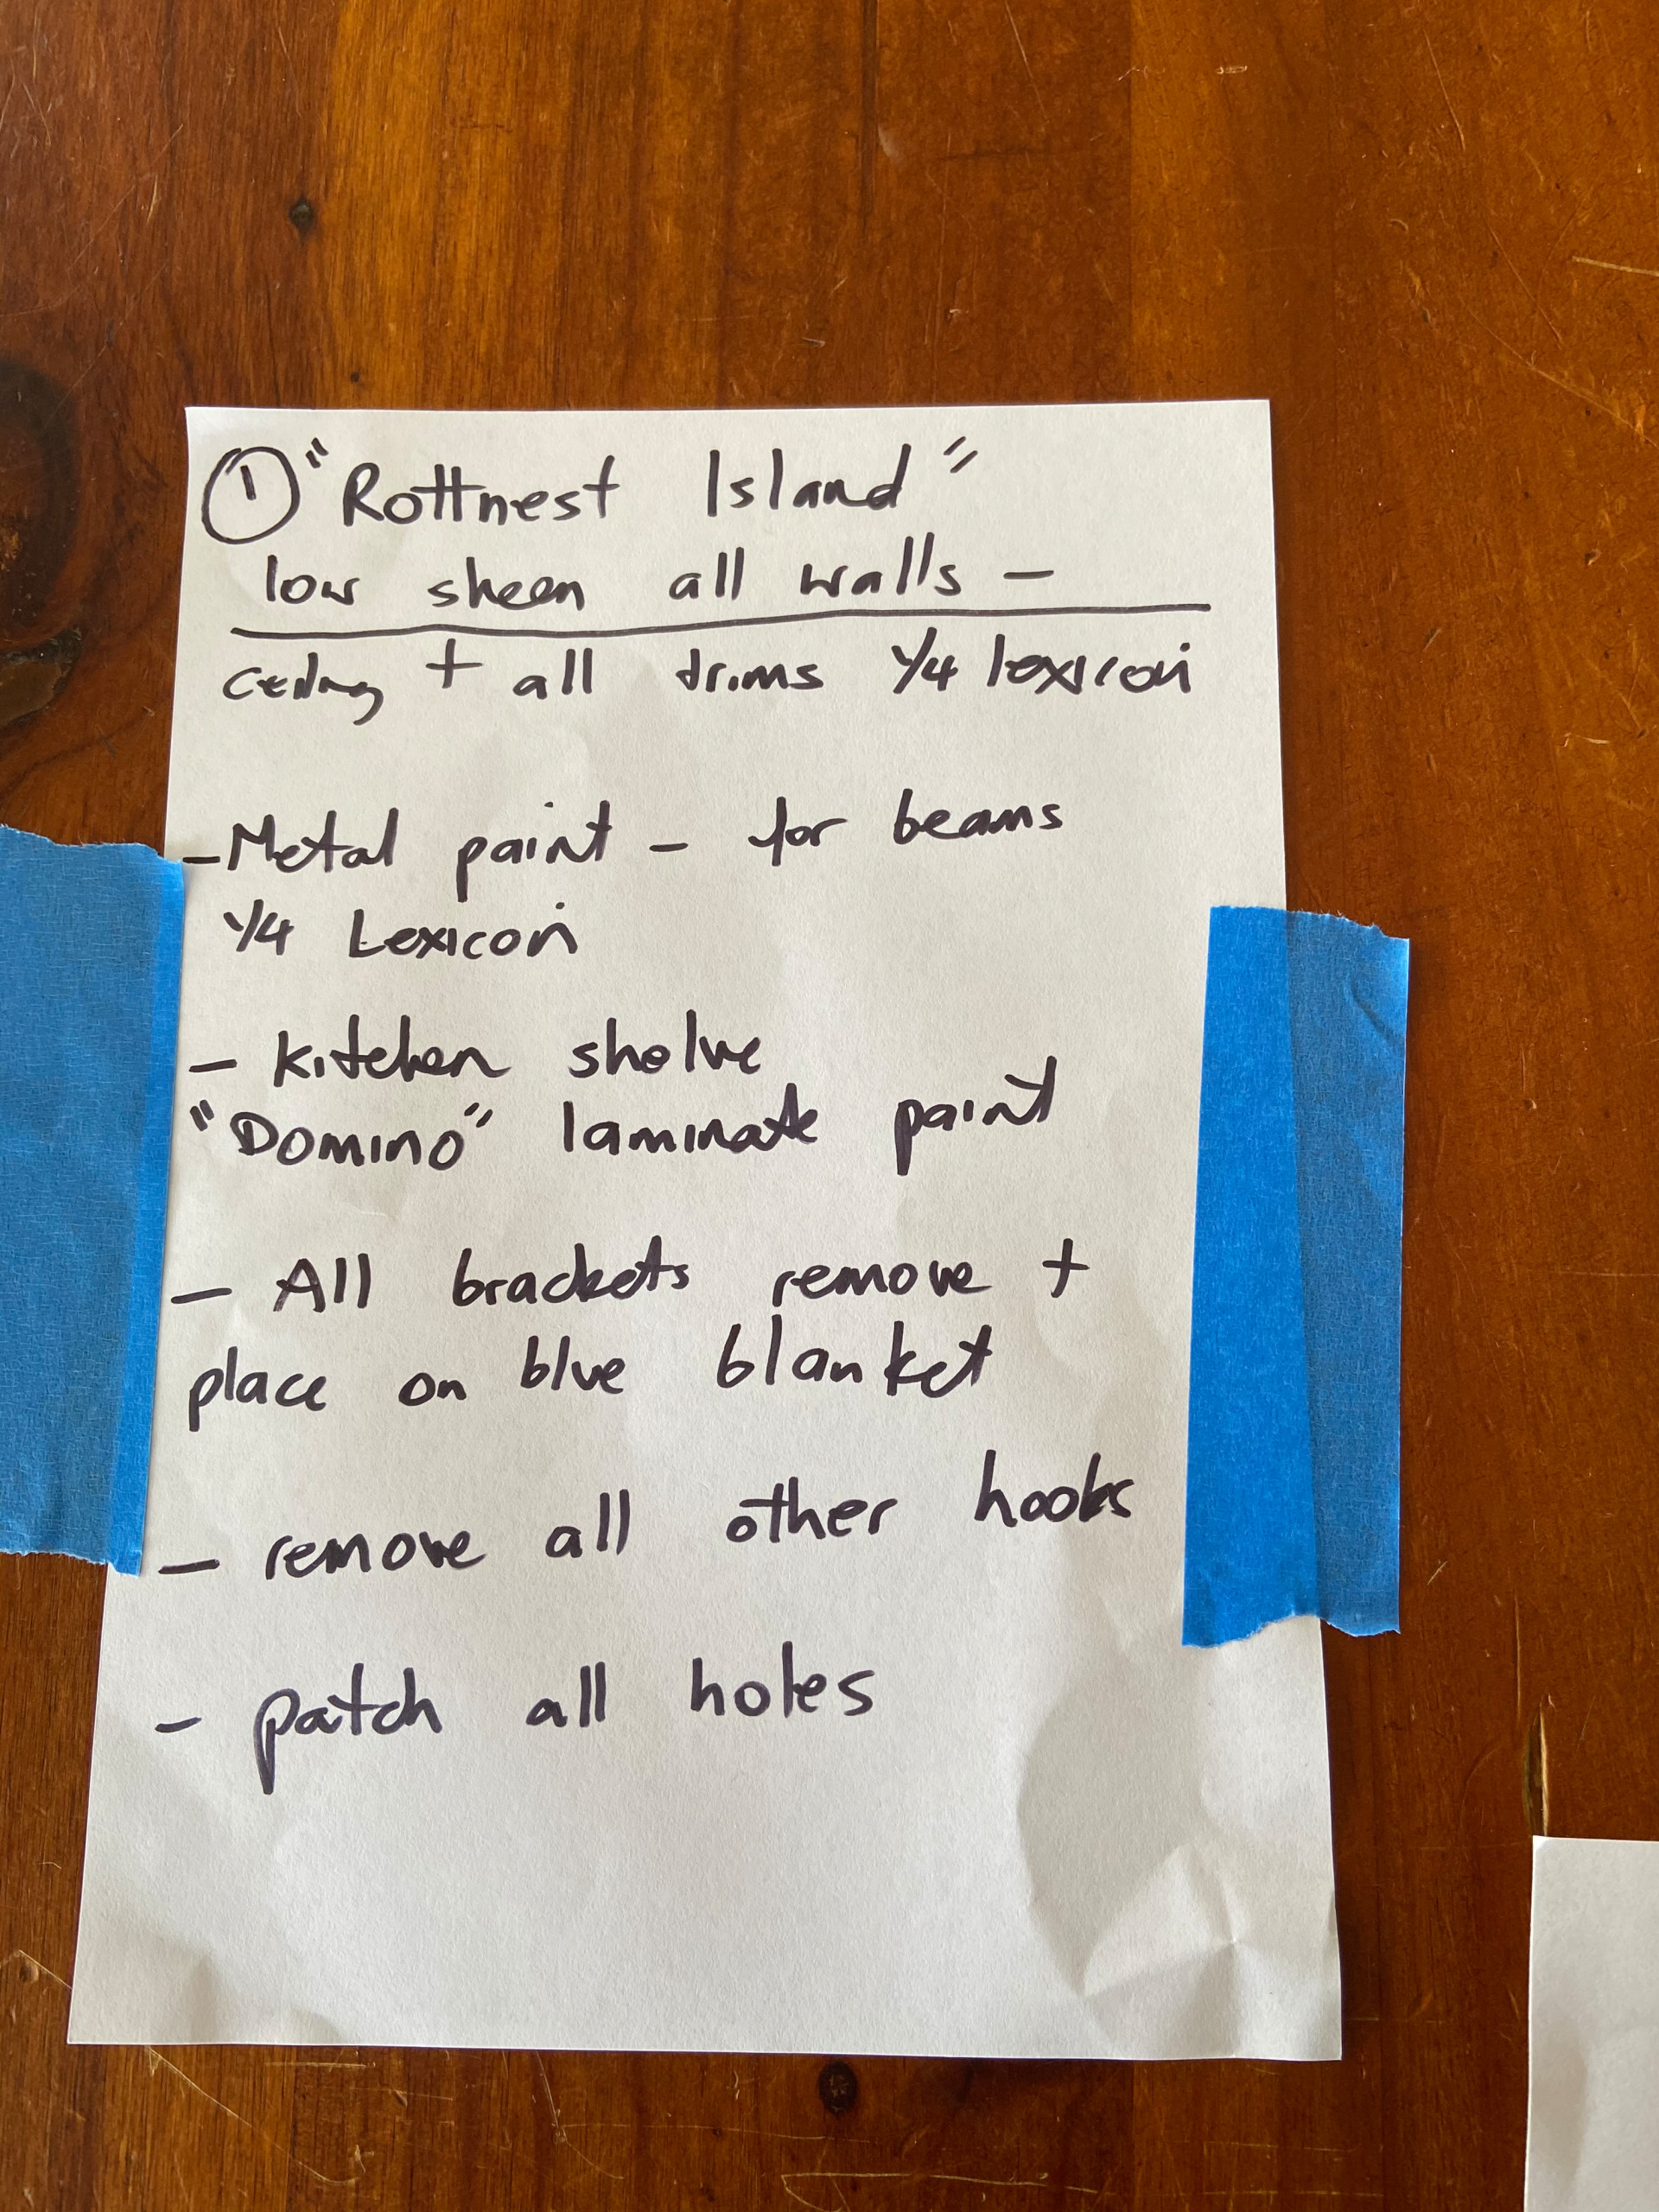 ① "Rottnest Island"
low sheen all walls –
ceiling + all trims 1/4 lexicon
– Metal paint – for beams
1/4 Lexicon
– Kitchen shelve
"Domino" laminate paint
– All brackets remove +
place on blue blanket
– remove all other hooks
– patch all holes